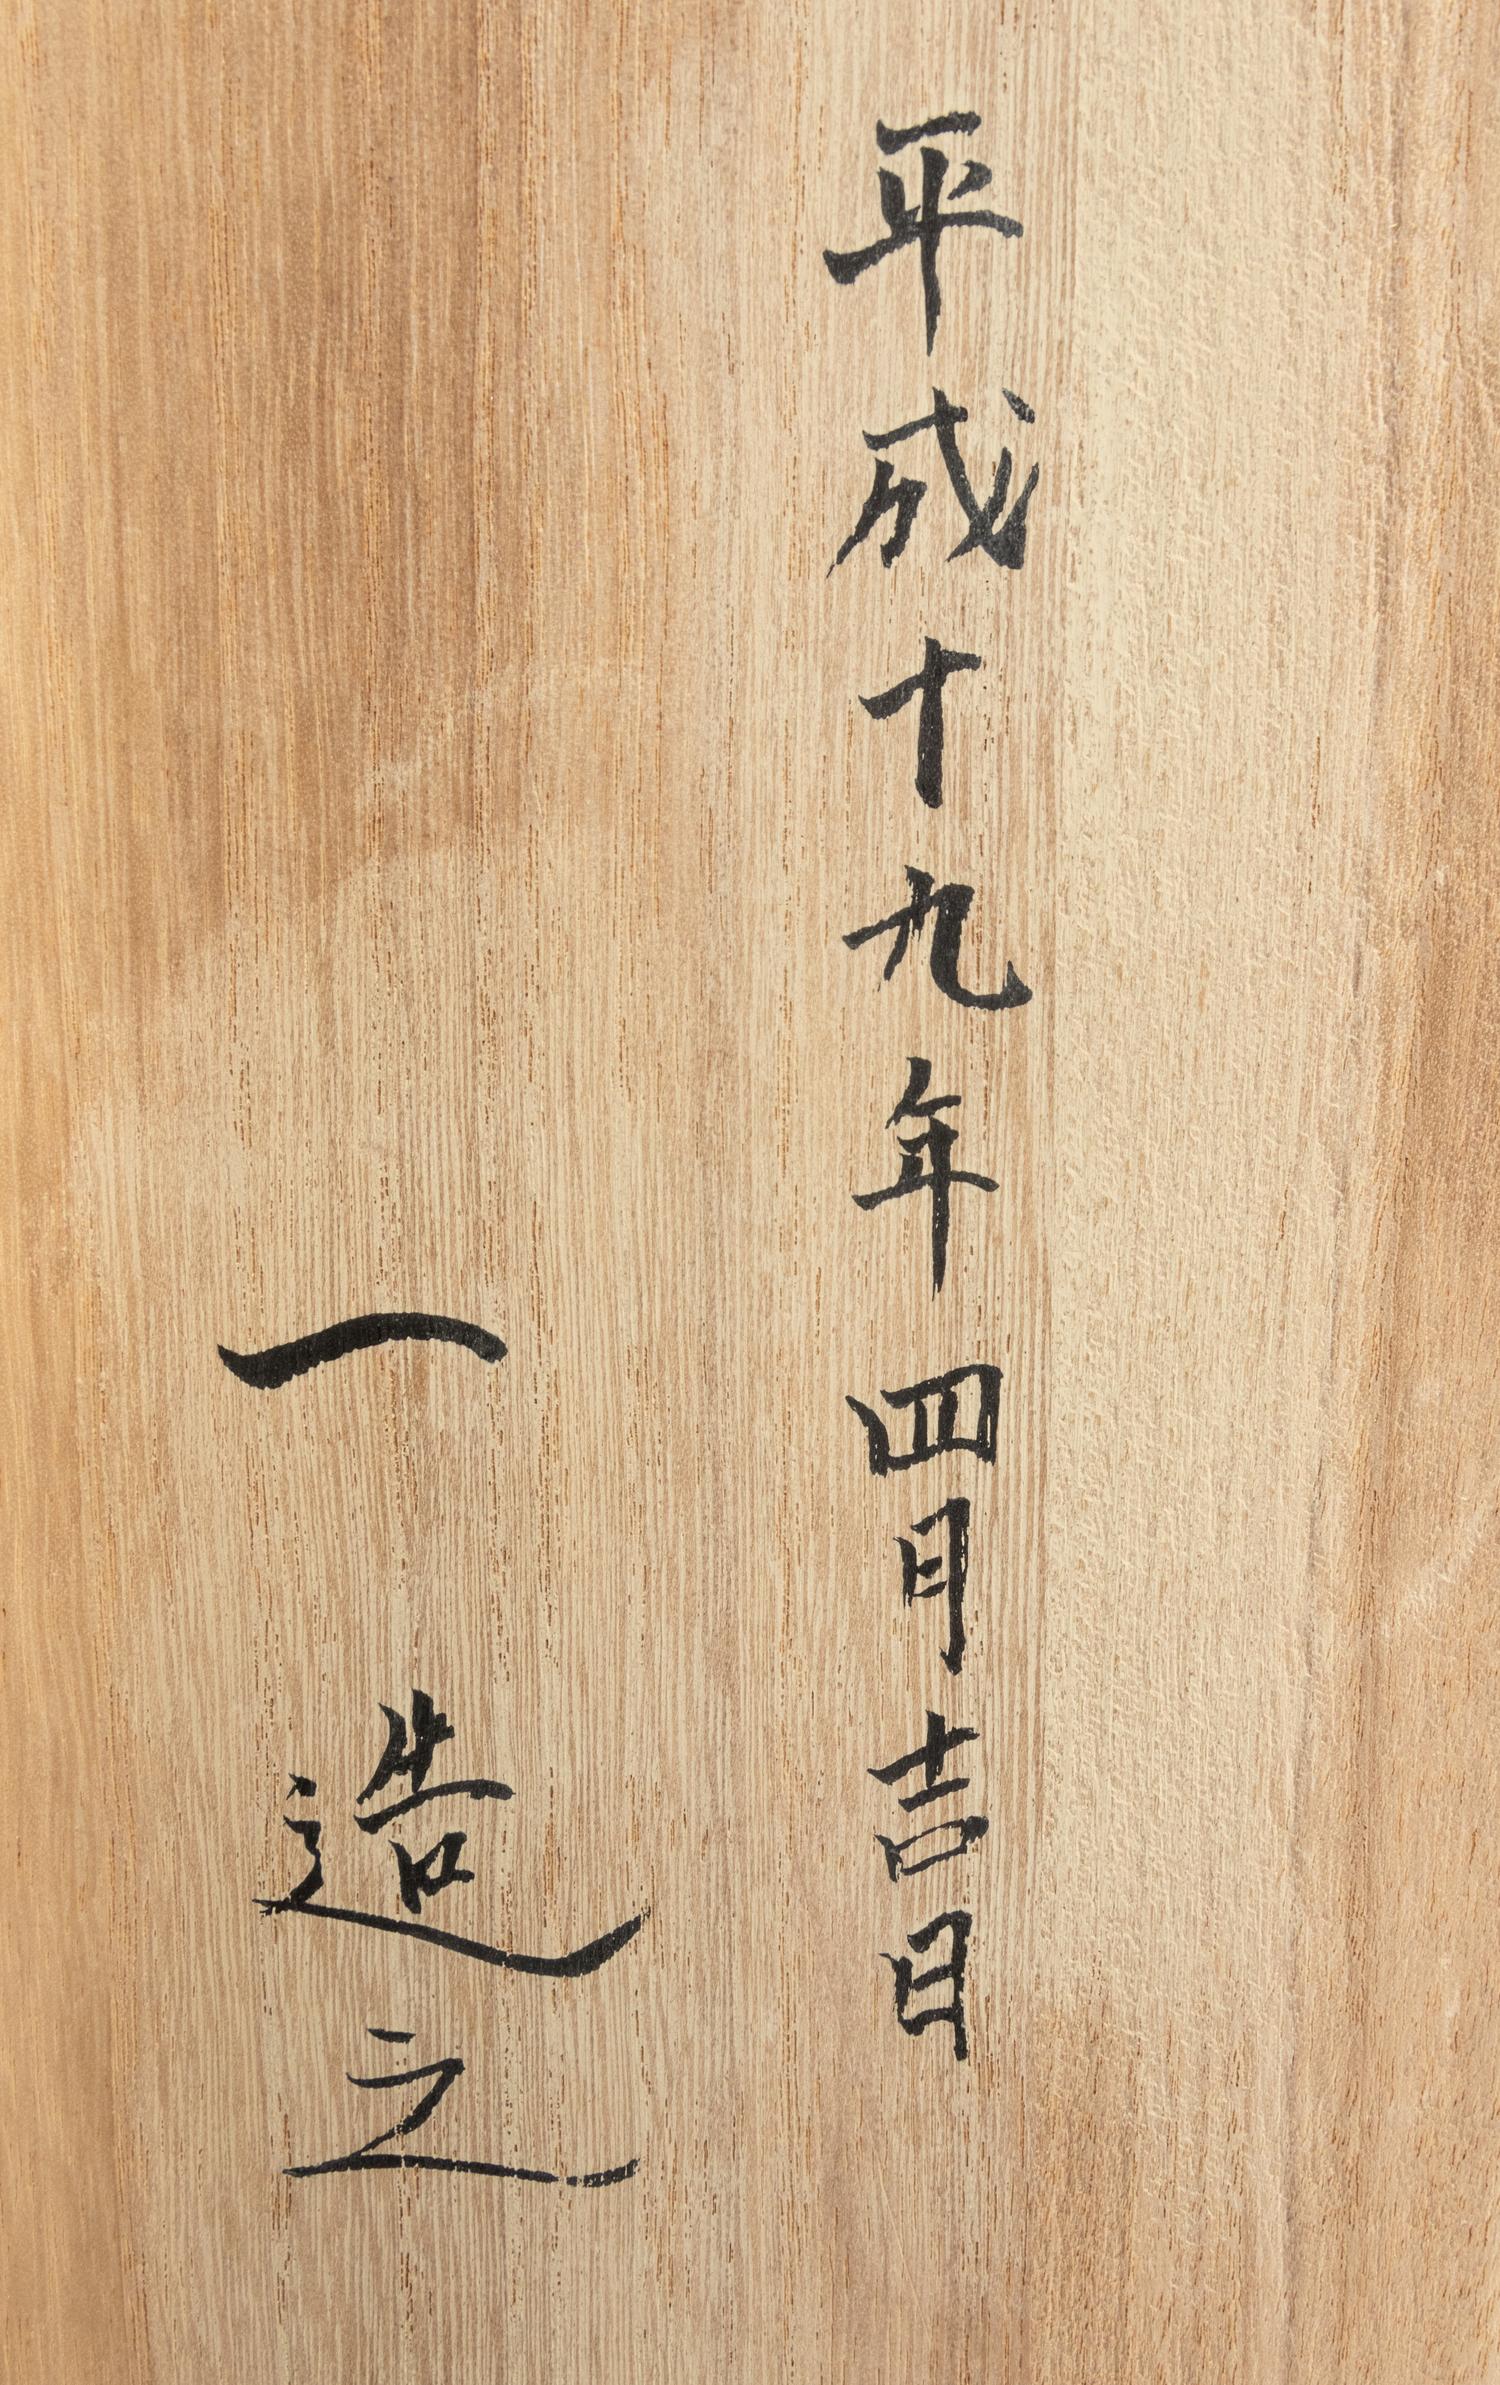 平成十九年四月吉日
一造之